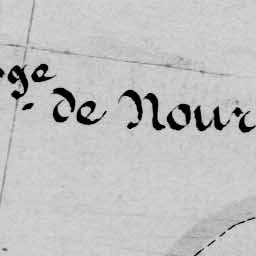 oge
- de Nour